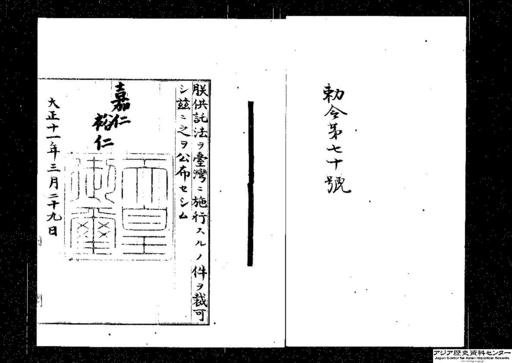 勅令第七十號
朕供託法ヲ臺灣ニ施行スルノ件ヲ裁可
シ茲ニ之ヲ公布セシム
嘉仁
裕仁
天皇
御璽
大正十一年三月二十九日
アジア歴史資料センター
Japan Center for Asian Historical Records